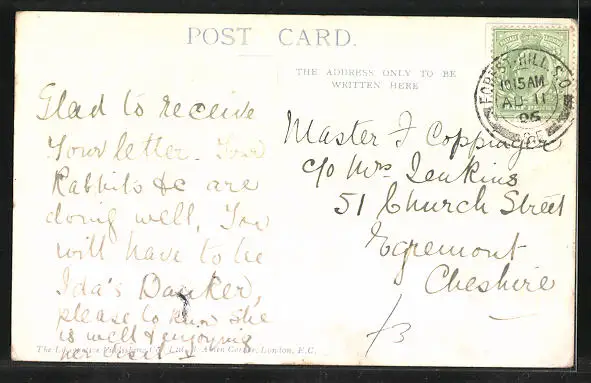 POST CARD.
THE ADDRESS ONLY TO BE
WRITTEN HERE
FOREST-HILL S.O.
10 15 AM
AU 11
06
S.E.
Glad to receive
Your letter. Your
Rabbits &c are
doing well, You
will have to be
Ida's Banker,
please to know she
is well & enjoying
her
Master F Coppinger
c/o Mrs Jenkins
51 Church Street
Egremont
Cheshire
/3
The London, E.C.